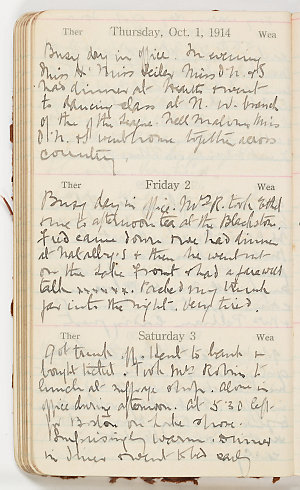 Ther Thursday, Oct. 1, 1914 Wea
Busy day in office. In evening
Miss Miss Miss
had dinner at went
to dancing class at N. W. branch
of the of the League. Nell Malin Miss
went home together across
country.
Ther Friday 2 Wea
Busy day in office. took
me to afternoon tea at the Blackstone.
Fred came down & we had dinner
at & then he went out
on the Lake Front & had a farewell
talk xxxxxx. Packed my trunk
far into the night. Very tired.
Ther Saturday 3 Wea
Got trunk off. Went to bank &
bought ticket. Took Mrs to
lunch at suffrage shop. Alone in
office during afternoon. At 5:30 left
for Boston on Lake Shore.
Surprisingly warm. Dinner
in diner & went to bed early